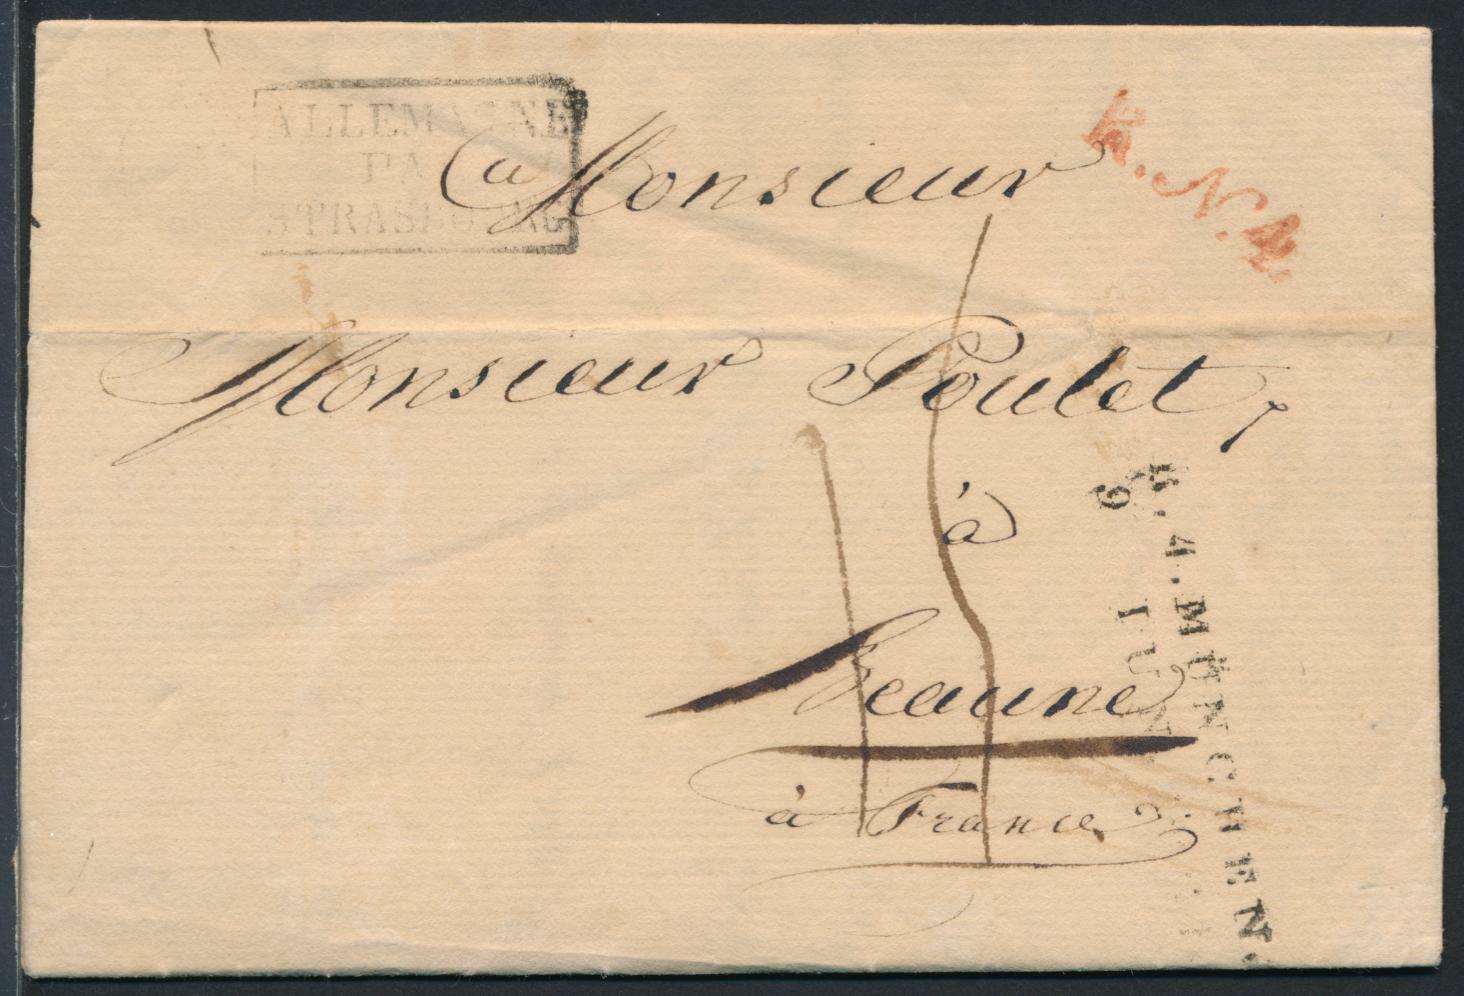 ALLEMAGNE
PAR
STRASBOURG
a Monsieur
Monsieur Poulet,
à
Beaune
à France
R. 4. MÜNCHEN.
9 IUN